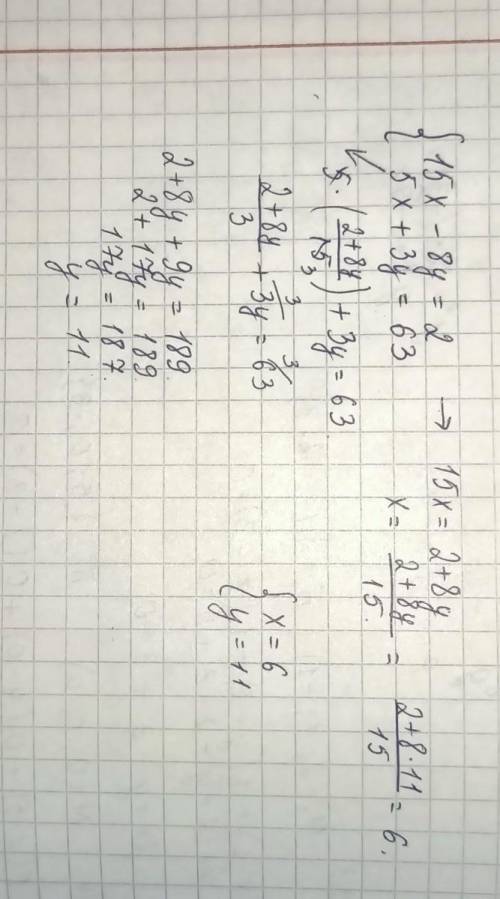 { 15x - 8y = 2 → 15x = 2+8y
5x + 3y = 63 x = (2+8y)/15. = (2+8·11)/15 = 6.
↙
5 · ((2+8y)/15 3) + 3y = 63
(2+8y)/3 + 3/ 3y = 3/ 63
2+8y + 9y = 189.
2 + 17y = 189.
17y = 187.
y = 11.
{ x = 6
y = 11